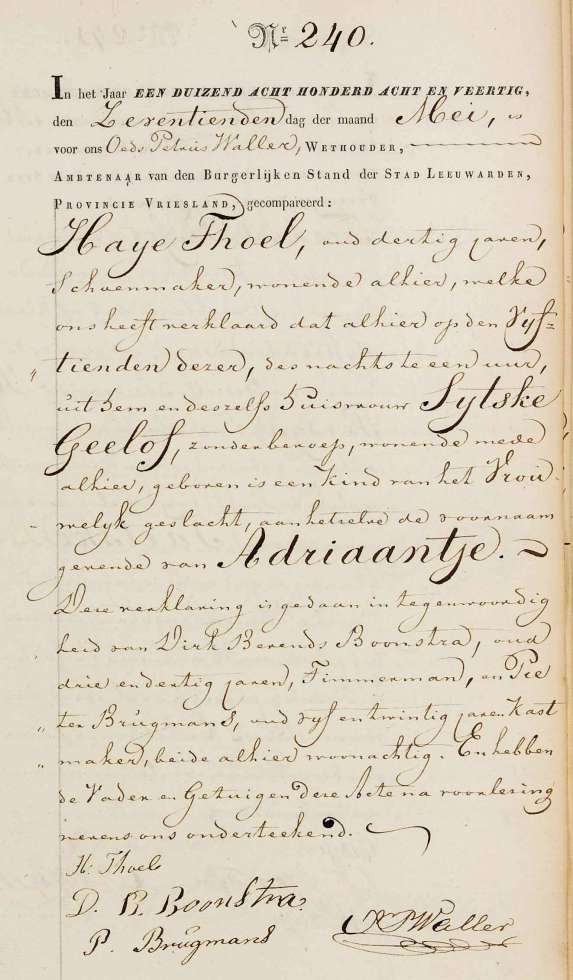 Nr 240.
In het Jaar EEN DUIZEND ACHT HONDERD ACHT EN VEERTIG,
den Zeventienden dag der maand Mei, is
voor ons Oeds Petrus Waller, WETHOUDER,
AMBTENAAR van den Burgerlijken Stand der STAD LEEUWARDEN,
PROVINCIE VRIESLAND, gecompareerd:
Haye Thoel, oud dertig jaren,
Schoenmaker, wonende alhier, welke
ons heeft verklaard dat alhier op den Vyf=
„ tienden dezer, des nachts te een uur,
uit hem en deszelfs huisvrouw Sytske
Geelof, zonder beroep, wonende mede
alhier, geboren is een kind van het Vrou
- welyk geslacht, aan hetzelve de voornaam
gevende van Adriaantje. ~
Deze verklaring is gedaan in tegenwoordig
„ heid van Dirk Berends Boonstra, oud
drie en dertig jaren, Timmerman, en Pie
„ ter Brugmans, oud vyf en twintig jaren Kast
„ maker, beide alhier woonachtig. En hebben
de Vader en Getuigen deze Acte na voorlezing
nevens ons onderteekend. ~
H. Thoel
D. B. Boonstra.
P. Brugmans
OPWaller